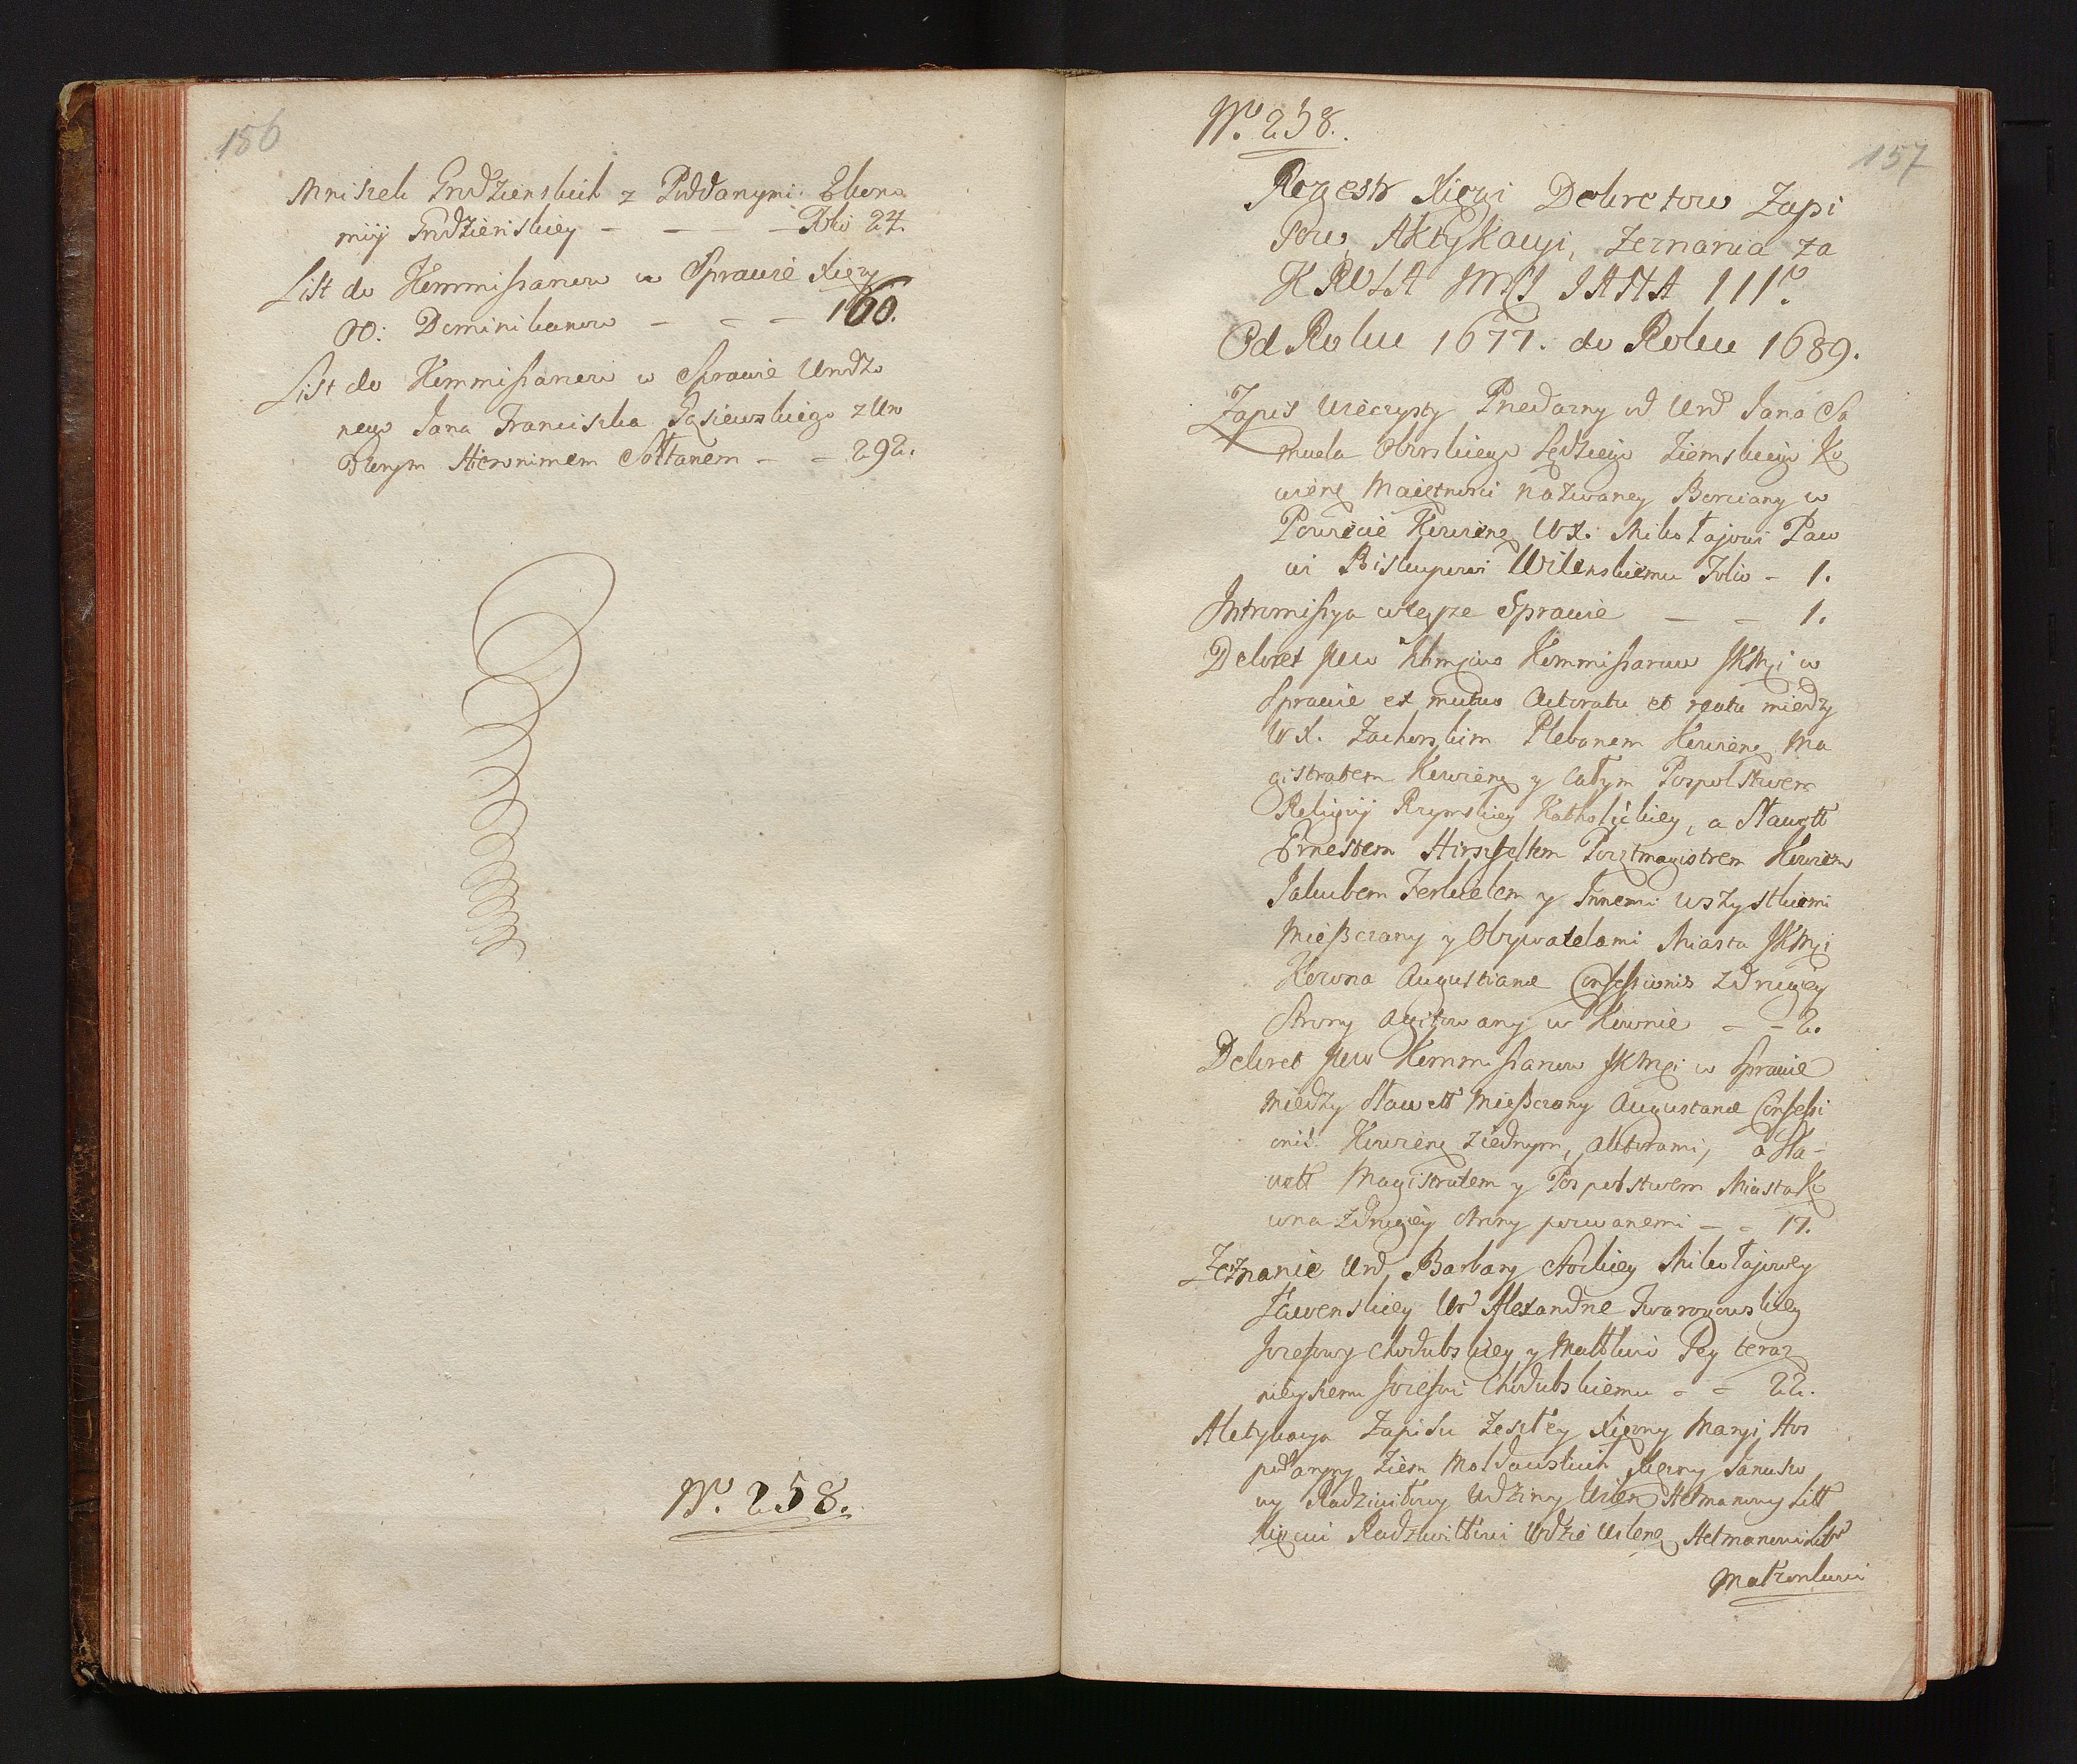 156
Mniszek Grodzienskich z Poddanymi Ekono
mij Grodzienskiey - - - Folio 24.
List do Kommissarzow w Sprawie Xięży
OO: Dominikanow - - - 160.
List do Kommissarzow w Sprawie Urodzo
nego Jana Franciszka Gąsiewskiego z Uro
dzonym Hieronimem Sołtanem - - 292.
No. 258.
No. 258.
157
Regestr Xięgi Dekretow Zapi
sow, Aktykacyi, Zeznania za
KROLA JMCI JANA IIIo.
Od Roku 1677. do Roku 1689.
Zapis Wieczysty Przedazny od Urod Jana Sa
muela Sędziego Ziemskiego Ko
wieng Maiętnosci nazwaney w
Powiecie Kowieng WX. Mikołajowi Pacw
wi Biskupowi Wilenskiemu Folio - 1.
Intromissya wteyze Sprawie - - 1.
Dekret Kommissarzow JKMci w
Sprawie ex mutuo Actoratu et reatu miedzy
WX. Zachorskim Plebanem Kowieng Ma
gistratem Kowieng y całym Pospolstwem
Religiij Rzymskiey Katholickiey, a Sławett
Ernestem Poczmagistrem Kowien
Jakubem y Innemi wszystkiemi
Mieszczany y Obywatelami Miasta JKMci
Kowna Augustianæ Confessionis zdrugiey
Strony agitowany w Kownie - - 2.
Dekret Kommissarzow JKMci w Sprawie
miedzy Sławett Mieszczany Augustanæ Confessi
onis Kowieng ziednym, Aktorami, a Sła-
wett Magistratem y Pospolstwem Miasta Ko
wna zdrugiey Strony pozwanemi - - 17.
Zeznanie Urod Barbary Mikołajowey
Ur Alexandrze
Jozefowy Chodubskiey y Małłkowi Jey teraz
nieyszemu Jozefowi Chodubskiemu - - 22.
Aktykacya Zapisu Zeszłey Xięzny Maryi Hos
podarzny Ziem Mołdawskich Xięzny Januszo
wy Radziwiłowy Wdziny Wilen Hetmanowy Litt
Xięciu Radziwiłłowi Wdzie Wileng Hetmanowi Litt
Małzonkowi